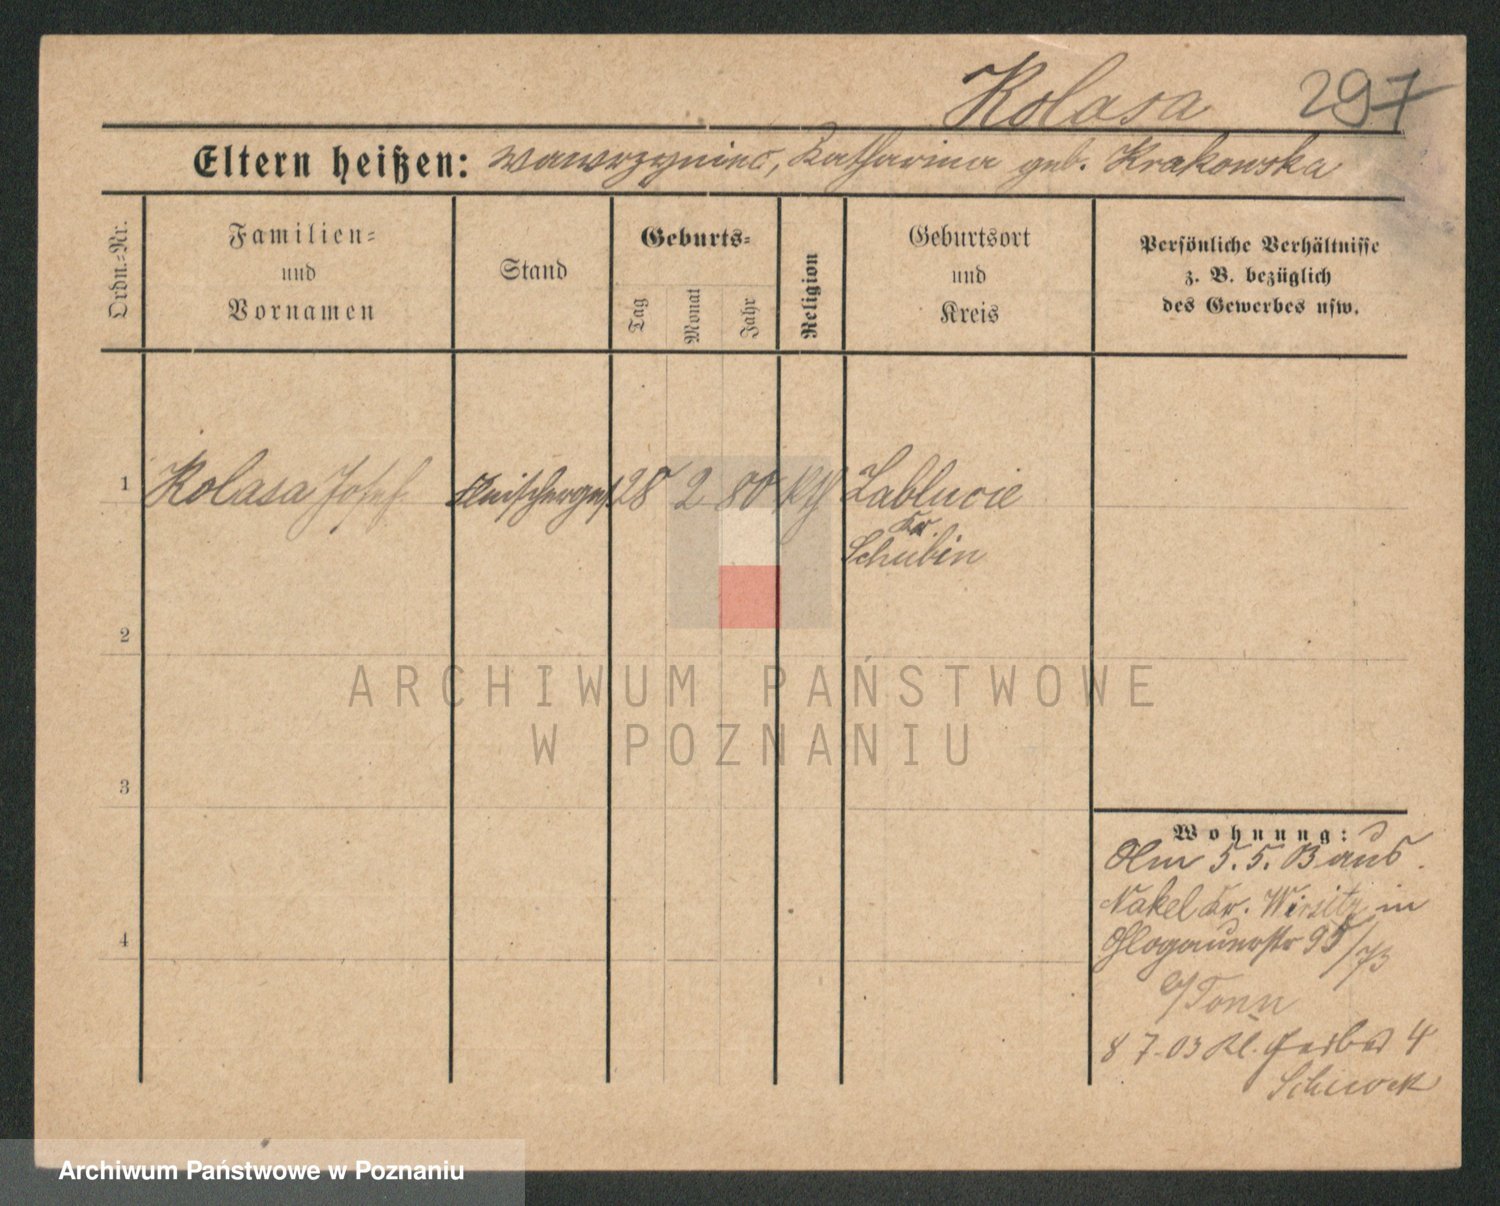 Kolasa 297
Eltern heißen: Wawrzyniec, Katharina geb. Krakowska
Ordn.-Nr.
Familien-
und
Vornamen
Stand
Geburts-
Tag
Monat
Jahr
Religion
Geburtsort
und
Kreis
Persönliche Verhältnisse
z. B. bezüglich
des Gewerbes usw.
1 Kolasa Josef Fleischerges. 28 2 80 kth Zablucie
Kr.
Schubin
2
3
4
Wohnung:
Am 5. 5. 03 aus
Nakel Kr. Wirsitz in
Glogauerstr 95/73
b/Tonn
8 7-03 Kl. Gerber 4
ARCHIWUM PAŃSTWOWE
W POZNANIU
Archiwum Państwowe w Poznaniu